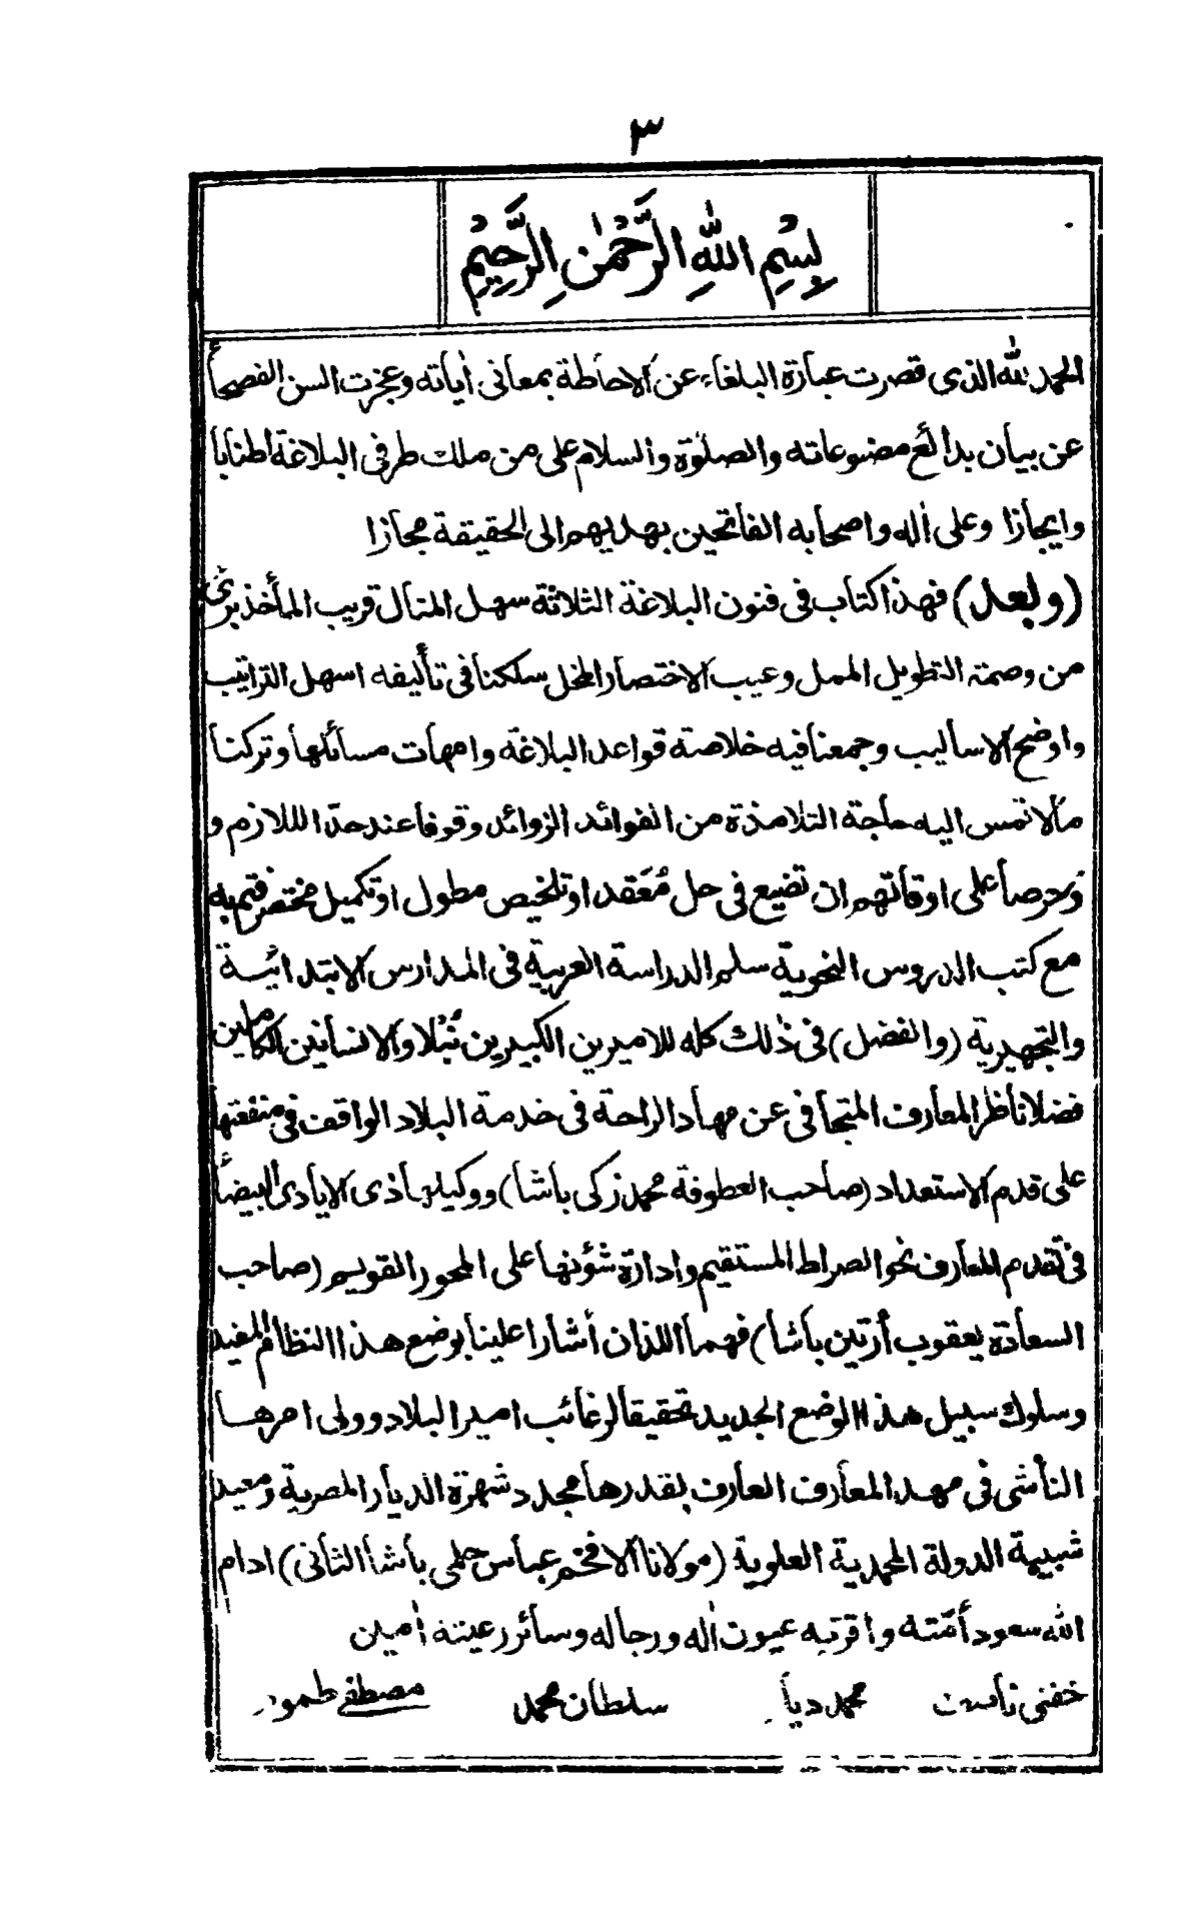 ٣
بِسْمِ اللهِ الرَّحْمٰنِ الرَّحِيْمِ
الحمد لله الذى قصرت عبارة البلغاء عن الاحاطة بمعانى اٰياته وعجزت السن الفصحاء
عن بيان بدائع مضوعاته والصلوٰة والسلام على من ملك طرفى البلاغة اطنابا
وايجازا وعلى اٰله واصحابه الفاتحين بهديهم الى الحقيقة مجازا
(وبعد) فهذا كتاب فى فنون البلاغة الثلاثة سهل المنال قريب المأخذ برئ
من وصمته التطويل الممل وعيب الاختصار المخل سلكنا فى تأليفه اسهل التراتيب
واوضح الاساليب وجمعنا فيه خلاصته قواعد البلاغة وامهات مسائلها وتركنا
مالا تمس اليه حاجة التلامذة من الفوائد الزوائد وقوفا عند حدّ اللازم و
وحرصا على اوقاتهم ان تضيع فى حل مُعَقد او تلخيص مطول او تكميل مختصر فتم به
مع كتب الدروس النحوية سلم الدراسة العربية فى المدارس الابتدائية
والتجهيزية (والفضل) فى ذٰلك كله للاميرين الكبيرين نُبْلا والانسانين الكاملين
فضلا ناظر المعارف المتجافى عن مهاد الراحة فى خدمة البلاد الواقف فى منفعتها
على قدم الاستعداد (صاحب العطوفة محمد زكى باشا) ووكيلها ذى الايادى البيضاء
فى تقدم المعارف نحو الصراط المستقيم وادارة شؤنها على المحور القويم (صاحب
السعادة يعقوب أرتين باشا) فهما اللذان أشارا علينا بوضع هذا النظام المفيد
وسلوك سبيل هذا الوضع الجديد تحقيقا لرغائب امير البلاد وولى امرها
الناشى فى مهد المعارف العارف بقدرها مجدد شهرة الديار المصرية ومعيد
شبيبة الدولة المحمدية العلوية (مولانا الافخم عباس حلمى باشا الثانى) ادام
الله سعود أمّته واقر به عيون اٰله ورجاله وسائر رعيته اٰمين
حفنى ناصف محمد دياب سلطان محمد مصطفى طموم